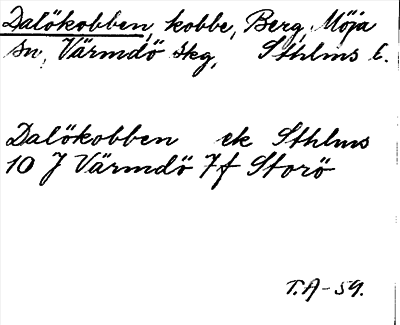 Dalökobben, kobbe, Berg, Möja
sn, Värmdö skg, Sthlms l.
Dalökobben ek Sthlms
10 J Värmdö 7f Storö
T.A-59.